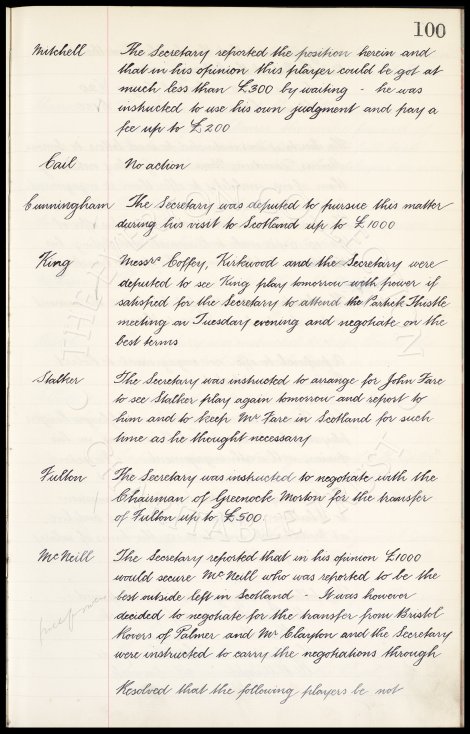 100
Mitchell The Secretary reported the position herein and
that in his opinion this player could be got at
much less than £300 by waiting - he was
instructed to use his own judgment and pay a
fee up to £200
Cail No action
Cunningham The Secretary was deputed to pursue this matter
during his visit to Scotland up to £1000
King Messrs Coffey, Kirkwood and the Secretary were
deputed to see King play tomorrow with power if
satisfied for the Secretary to attend the Partick Thistle
meeting on Tuesday evening and negotiate on the
best terms
Stalker The Secretary was instructed to arrange for John Fare
to see Stalker play again tomorrow and report to
him and to keep Mr Fare in Scotland for such
time as he thought necessary
Fulton The Secretary was instructed to negotiate with the
Chairman of Greenock Morton for the transfer
of Fulton up to £500
McNeill The Secretary reported that in his opinion £1000
would secure McNeill who was reported to be the
best outside left in Scotland - It was however
decided to negotiate for the transfer from Bristol
Rovers of Palmer and Mr Clayton and the Secretary
were instructed to carry the negotiations through
Resolved that the following players be not